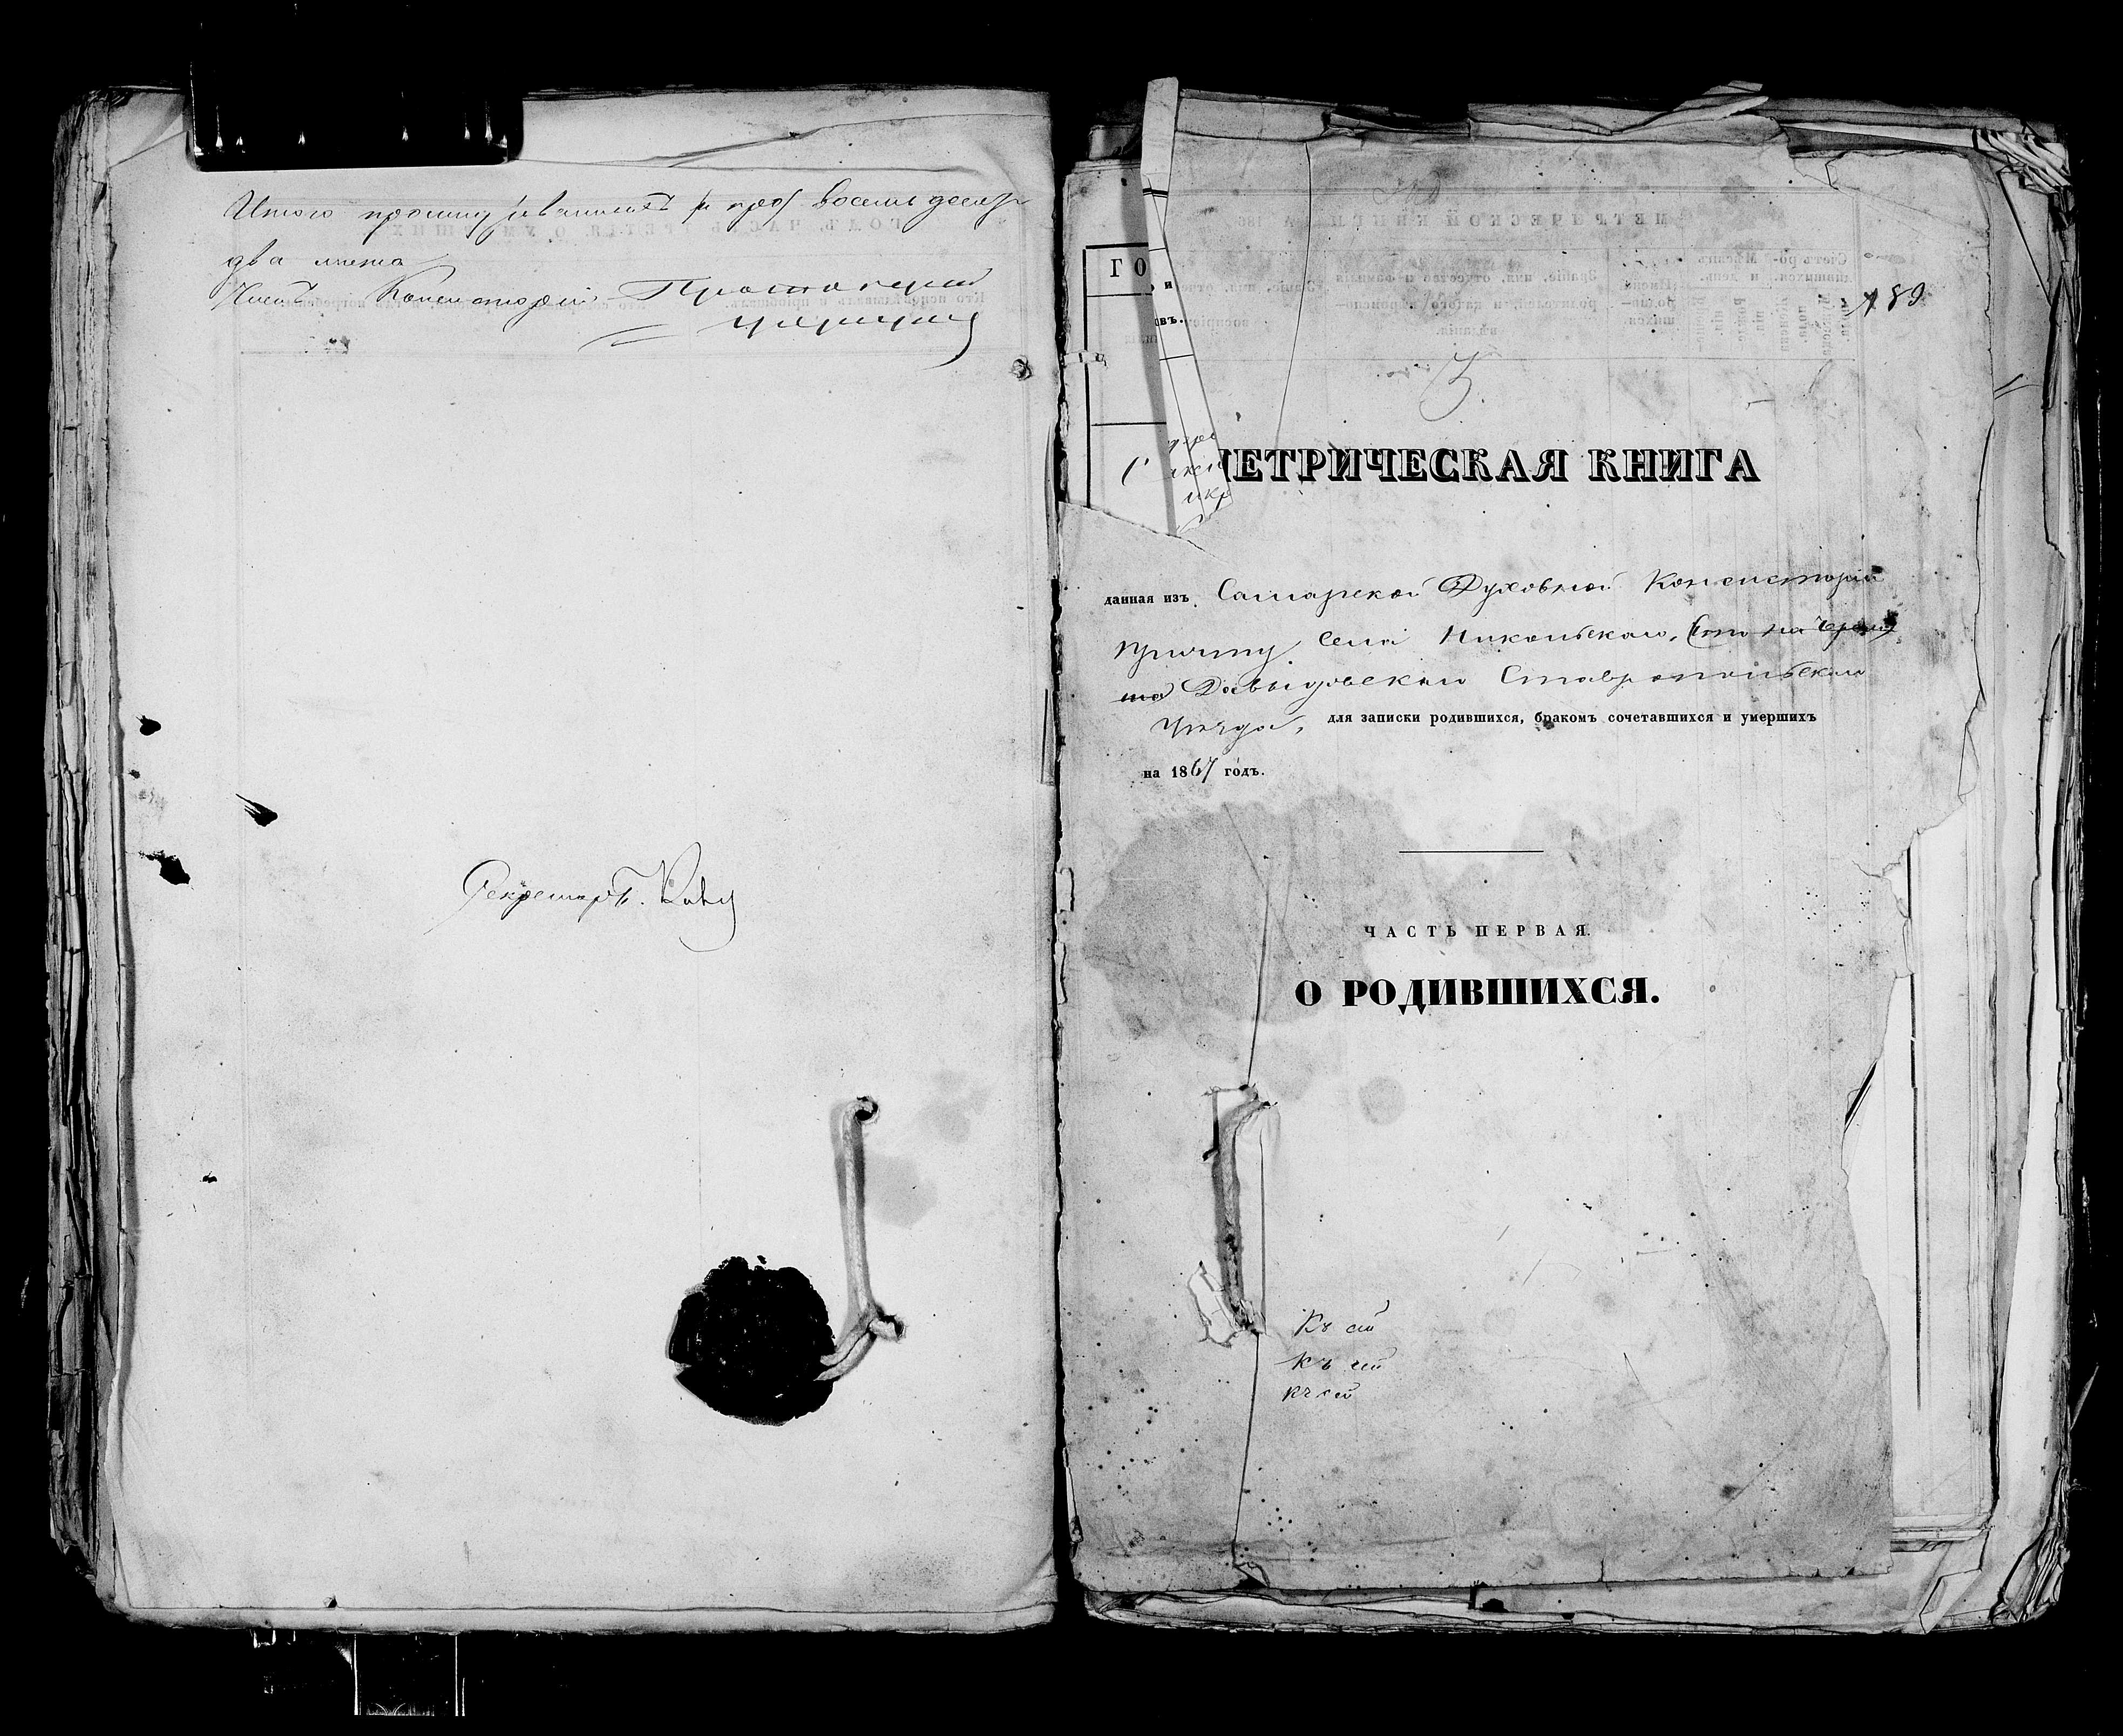 Итого прошнурованныхъ восемьдесят
два листа
Членъ Консисторіи Протоіерей
Секретарь
ГО
189
МЕТРИЧЕСКАЯ КНИГА
данная изъ Самарской Духовной Консисторіи
причту села Никольскаго, что на Черем
ша Давыдовскаго Ставропольскаго
уѣзда, для записки родившихся, бракомъ сочетавшихся и умершихъ
на 1867 годъ.
ЧАСТЬ ПЕРВАЯ.
О РОДИВШИХСЯ.
Къ сей
къ сей
къ сей